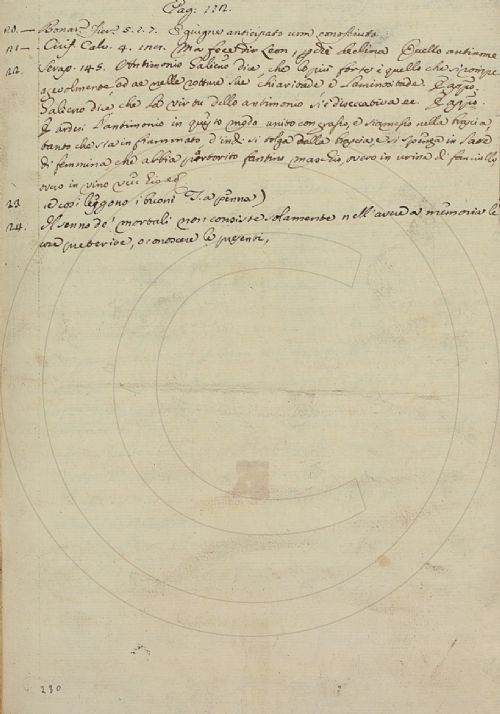 Pag. 112.
20. — Bonar. Fier. 5. 2. 7. E giugne anticipato uom conosciuto
21 — Ciriff. Calv. 4. Ma fece dir Leon, Quello antimone
22. Serap. 145. Antimonio Galieno dice, che lo più forte è quello che si rompe
agevolmente ed ae nelle rotture sue chiaritade e luminositade. E appo.
Galieno dice che la virtù dello antimonio si è diseccativa ec. E appo.
E ardesi l'antimonio in questo modo unito con grasso, e si mette nella bragia,
tanto che sia infiammato d'indi si tolga dalla bragia, e si spenga in latte
di femmina che abbia partorito fantino maschio, overo in urina di fanciullo,
overo in vino vecchio ec.
23. (e così leggono i buoni T. a penna)
24. Il senno de' mortali non consiste solamente nell'avere a memoria le
cose preterite, o conoscere le presenti,
C
230